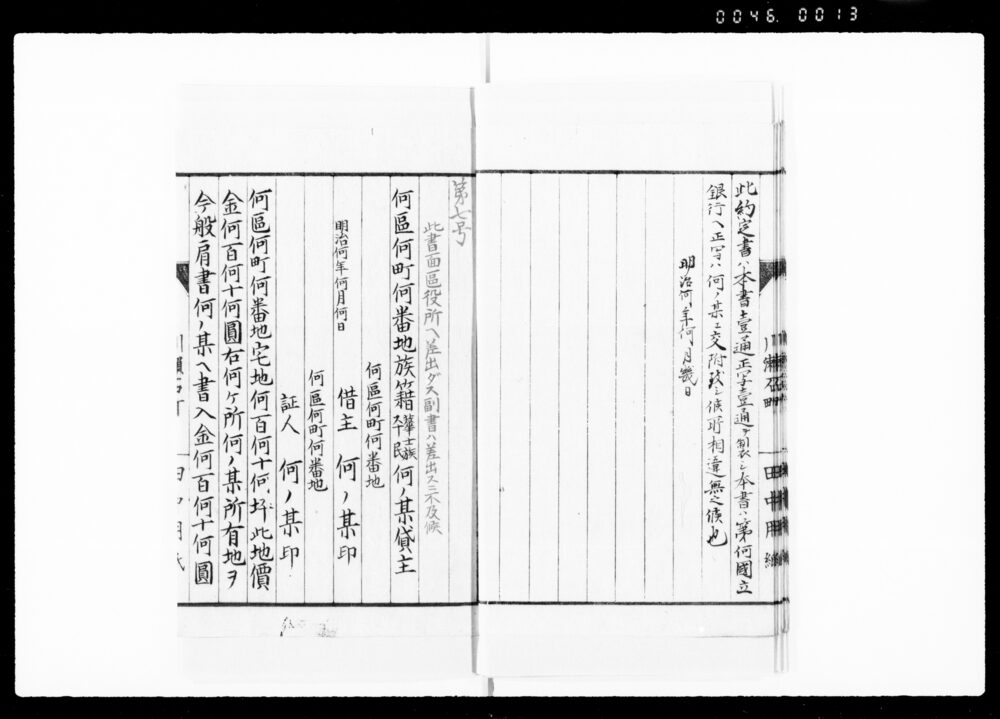 0046. 0013
此約定書ハ本書壹通正写壹通ヲ製シ本書ハ第何國立
銀行ヘ正写ハ何ノ某エ交附致シ候所相違無之候也
明治何年何月幾日
田中用紙
第七号
此書面區役所ヘ差出ダス副書ハ差出スニ不及候
何區何町何番地族籍華士族平民何ノ某貸主
何區何町何番地
明治何年何月何日
借主 何ノ某印
何區何町何番地
証人 何ノ某印
何區何町何番地宅地何百何十何坪此地價
金何百何十何圓右何ヶ所何ノ某所有地ヲ
今般肩書何ノ某ヘ書入金何百何十何圓